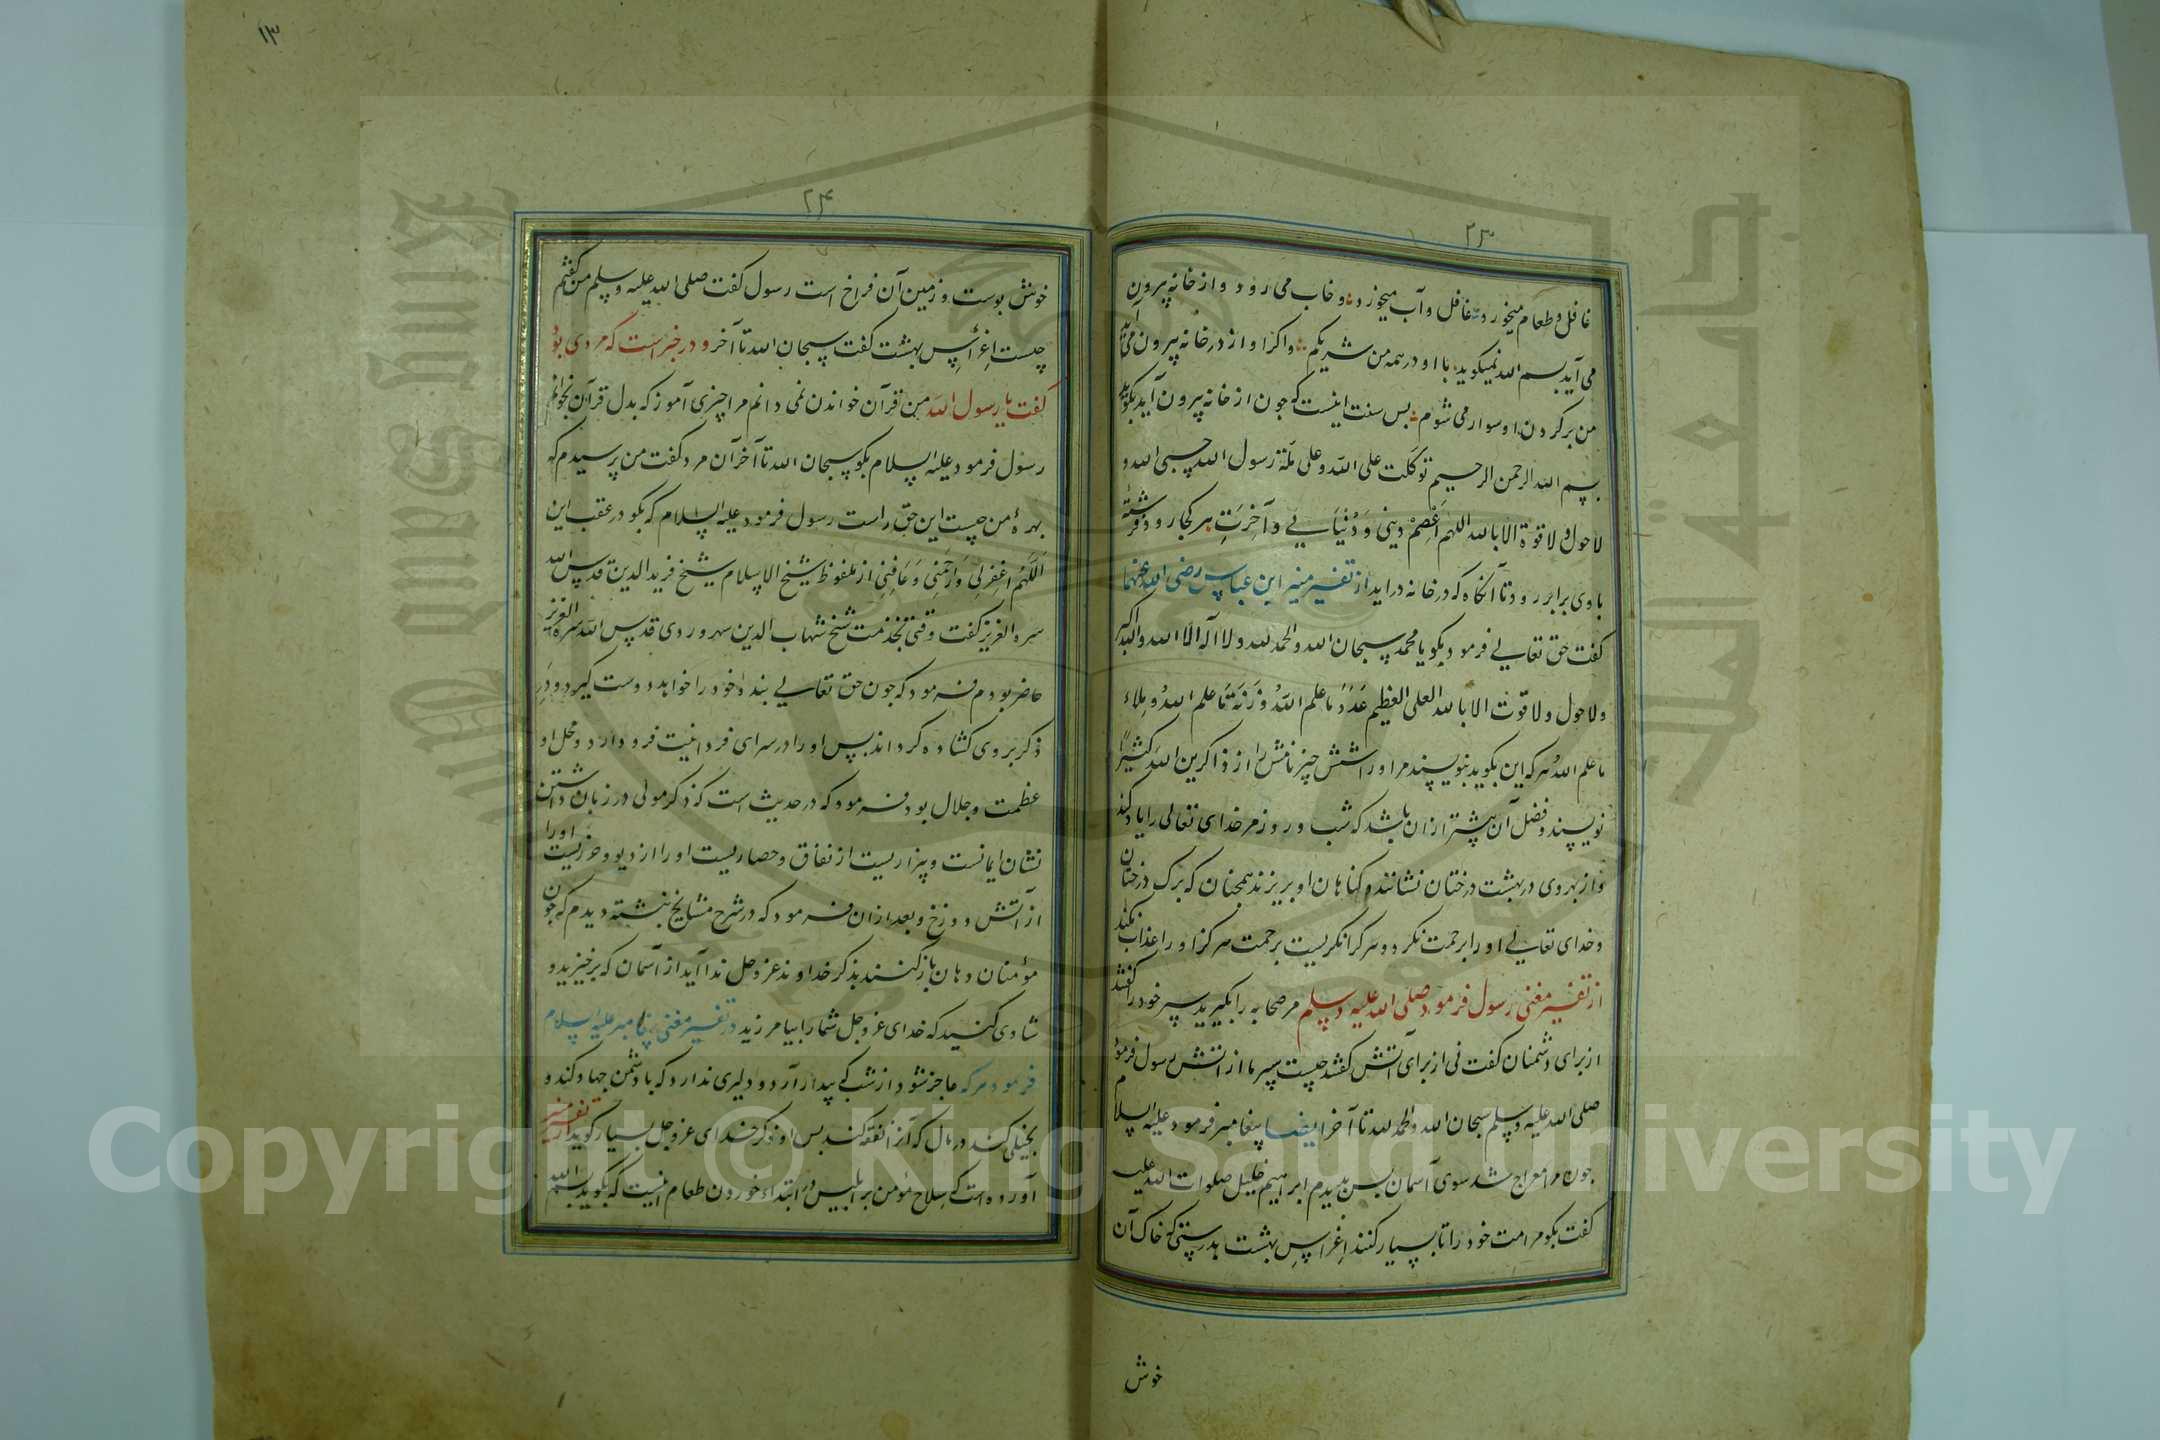 ٢٣
غافل و طعام میخورد غافل و آب میخورد و خاب می رود و از خانه بیرون
می آید بسم الله نمیکوید با او در همه من شریکم و اکر او از در خانه بیرون می آید
من بر کردن او سوار می شوم بس سنت اینست که جون از خانه بیرون آید بکوید
بسم الله الرحمن الرحیم توکلت علی الله و علی ملة رسول الله حسبی الله و
لا حول و لا قوة الا بالله اللهم اعصم دینی و دنیایی و آخرت هر کجا رود فرشتهٔ
با وی برابر رود تا آنکاه که در خانه دراید از تفسیر منیر ابن عباس رضی الله عنهما
کفت حق تعالی فرمود بکو یا محمد سبحان الله و الحمد لله و لا اله الا الله و الله اکبر
و لا حول و لا قوت الا بالله العلی العظیم عدد ما علم الله و زنة ما علم الله و ملاء
ما علم الله هر که این بکوید بنویسند مر او را شش چیز نامش را از ذاکرین الله کثیرا
نویسند و فضل آن بیشتر ازان باشد که شب و روز مر خدای تعالی را یاد کند
و از بهر وی در بهشت درختان نشانند و کناهان او بریزند همجنان که برک درختان
و خدای تعالی او را برحمت نکرد و هر کرا نکریست برحمت هرکز او را عذاب نکند
از تفسیر مغنی رسول فرمود صلی الله علیه و سلم مر صحابه را بکیرید سپر خود را کفتند
از برای دشمنان کفت نی از برای آتش کفتند چیست سپر ما از آتش رسول فرمود
صلی الله علیه و سلم سبحان الله و الحمد لله تا آخر ایضا پیغامبر فرمود علیه السلام
جون مرا معراج شد سوی آسمان بس بدیدم ابراهیم خلیل صلوات الله علیه
کفت بکو مر امت خود را تا بسیار کنند اغراس بهشت بدرستی که خاک آن
خوش
١٣
٢٤
خوش بوست و زمین آن فراخ است رسول کفت صلی الله علیه و سلم من کفتم
چیست اغراس بهشت کفت سبحان الله تا آخر و در خبر است که مردی بود
کفت یا رسول الله من قرآن خواندن نمی دانم مرا چیزی آموز که بدل قرآن بخوانم
رسول فرمود علیه السلام بکو سبحان الله تا آخر آن مرد کفت من پرسیدم که
بهرهٔ من چیست این حق راست رسول فرمود علیه السلام که بکو در عقب این
اللهم اغفر لی و ارحمنی و عافنی از ملفوظ شیخ الاسلام شیخ فرید الدین قدس الله
سره العزیز کفت وقتی بخدمت شیخ شهاب الدین سهروردی قدس الله سره العزیز
حاضر بودم فرمود که جون حق تعالی بندهٔ خود را خواهد دوست کیرد و در
ذکر بر وی کشاده کرداند بس او را در سرای فردانیت فرود آرد و محل او
عظمت و جلال بود فرمود که در حدیث است که ذکر مولی در زبان داشتن
نشان ایمانست و بیزاریست از نفاق و حصاریست او را از دیو و حرزیست او را
از آتش دوزخ و بعد ازان فرمود که در شرح مشایخ نبشته دیدم که جون
مؤمنان دهان باز کنند بذکر خداوند عز و جل ندا آید از آسمان که برخیزید و
شادی کنید که خدای عز و جل شما را بیامرزید در تفسیر مغنی پیغامبر علیه السلام
فرمود هر که عاجز شود از شب که بیدار آرد و دلیری ندارد که با دشمن جهاد کند و
بخیلی کند در مال که آنرا نفقه کند بس او ذکر خدای عز و جل بسیار کوید از تفسیر منیر
آورده است که سلاح مؤمن بر ابلیس در ابتداء خوردن طعام اینست که بکوید بسم الله
Copyright © King Saud University
King Saud University
جامعة الملك سعود
1957